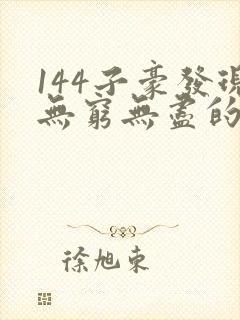 144子豪發現
無窮無盡的
徐旭東